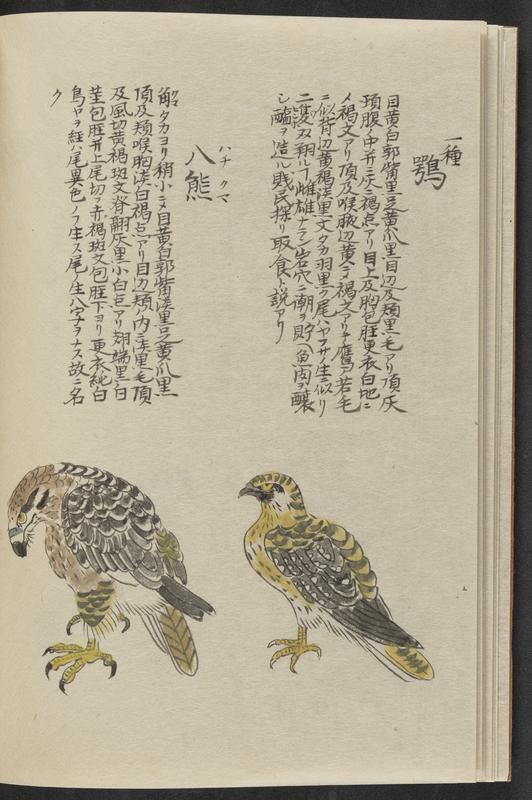 一種
鶚
目黄白郭觜黒足黄爪黒目辺及頬黒毛アリ頂灰
項腹ノ中并ニ灰ニ褐点アリ目上及胸包脛更衣白地ニ
〆褐文アリ頂及喉腋辺黄ニ褐文アリテ鷹ノ若毛
ニ似背辺黄褐淡黒文タカ羽黒ク尾ハヤフサ生ニ似リ
二隻双翔ルフ雌雄ナラン岩穴ニ潮ヲ貯魚肉ヲ醸
シ醢ヲ造ル賎民探リ取食ト説アリ
ハチ クマ
八熊
クマ
角タカヨリ稍小ニ〆目黄白郭觜淡黒足黄爪黒
頂及頬喉胸淡白褐点アリ目辺頬ノ内ニ淡黒毛頂
及風切黄褐斑文脊翮灰黒小白点アリ翅端黒白
茎包脛并上尾切ヲ赤褐斑文包脛下ヨリ更衣純白
鳥ヤヲ経ハ尾異色ノフ生ス尾ノ生八字ヲナス故ニ名
ク